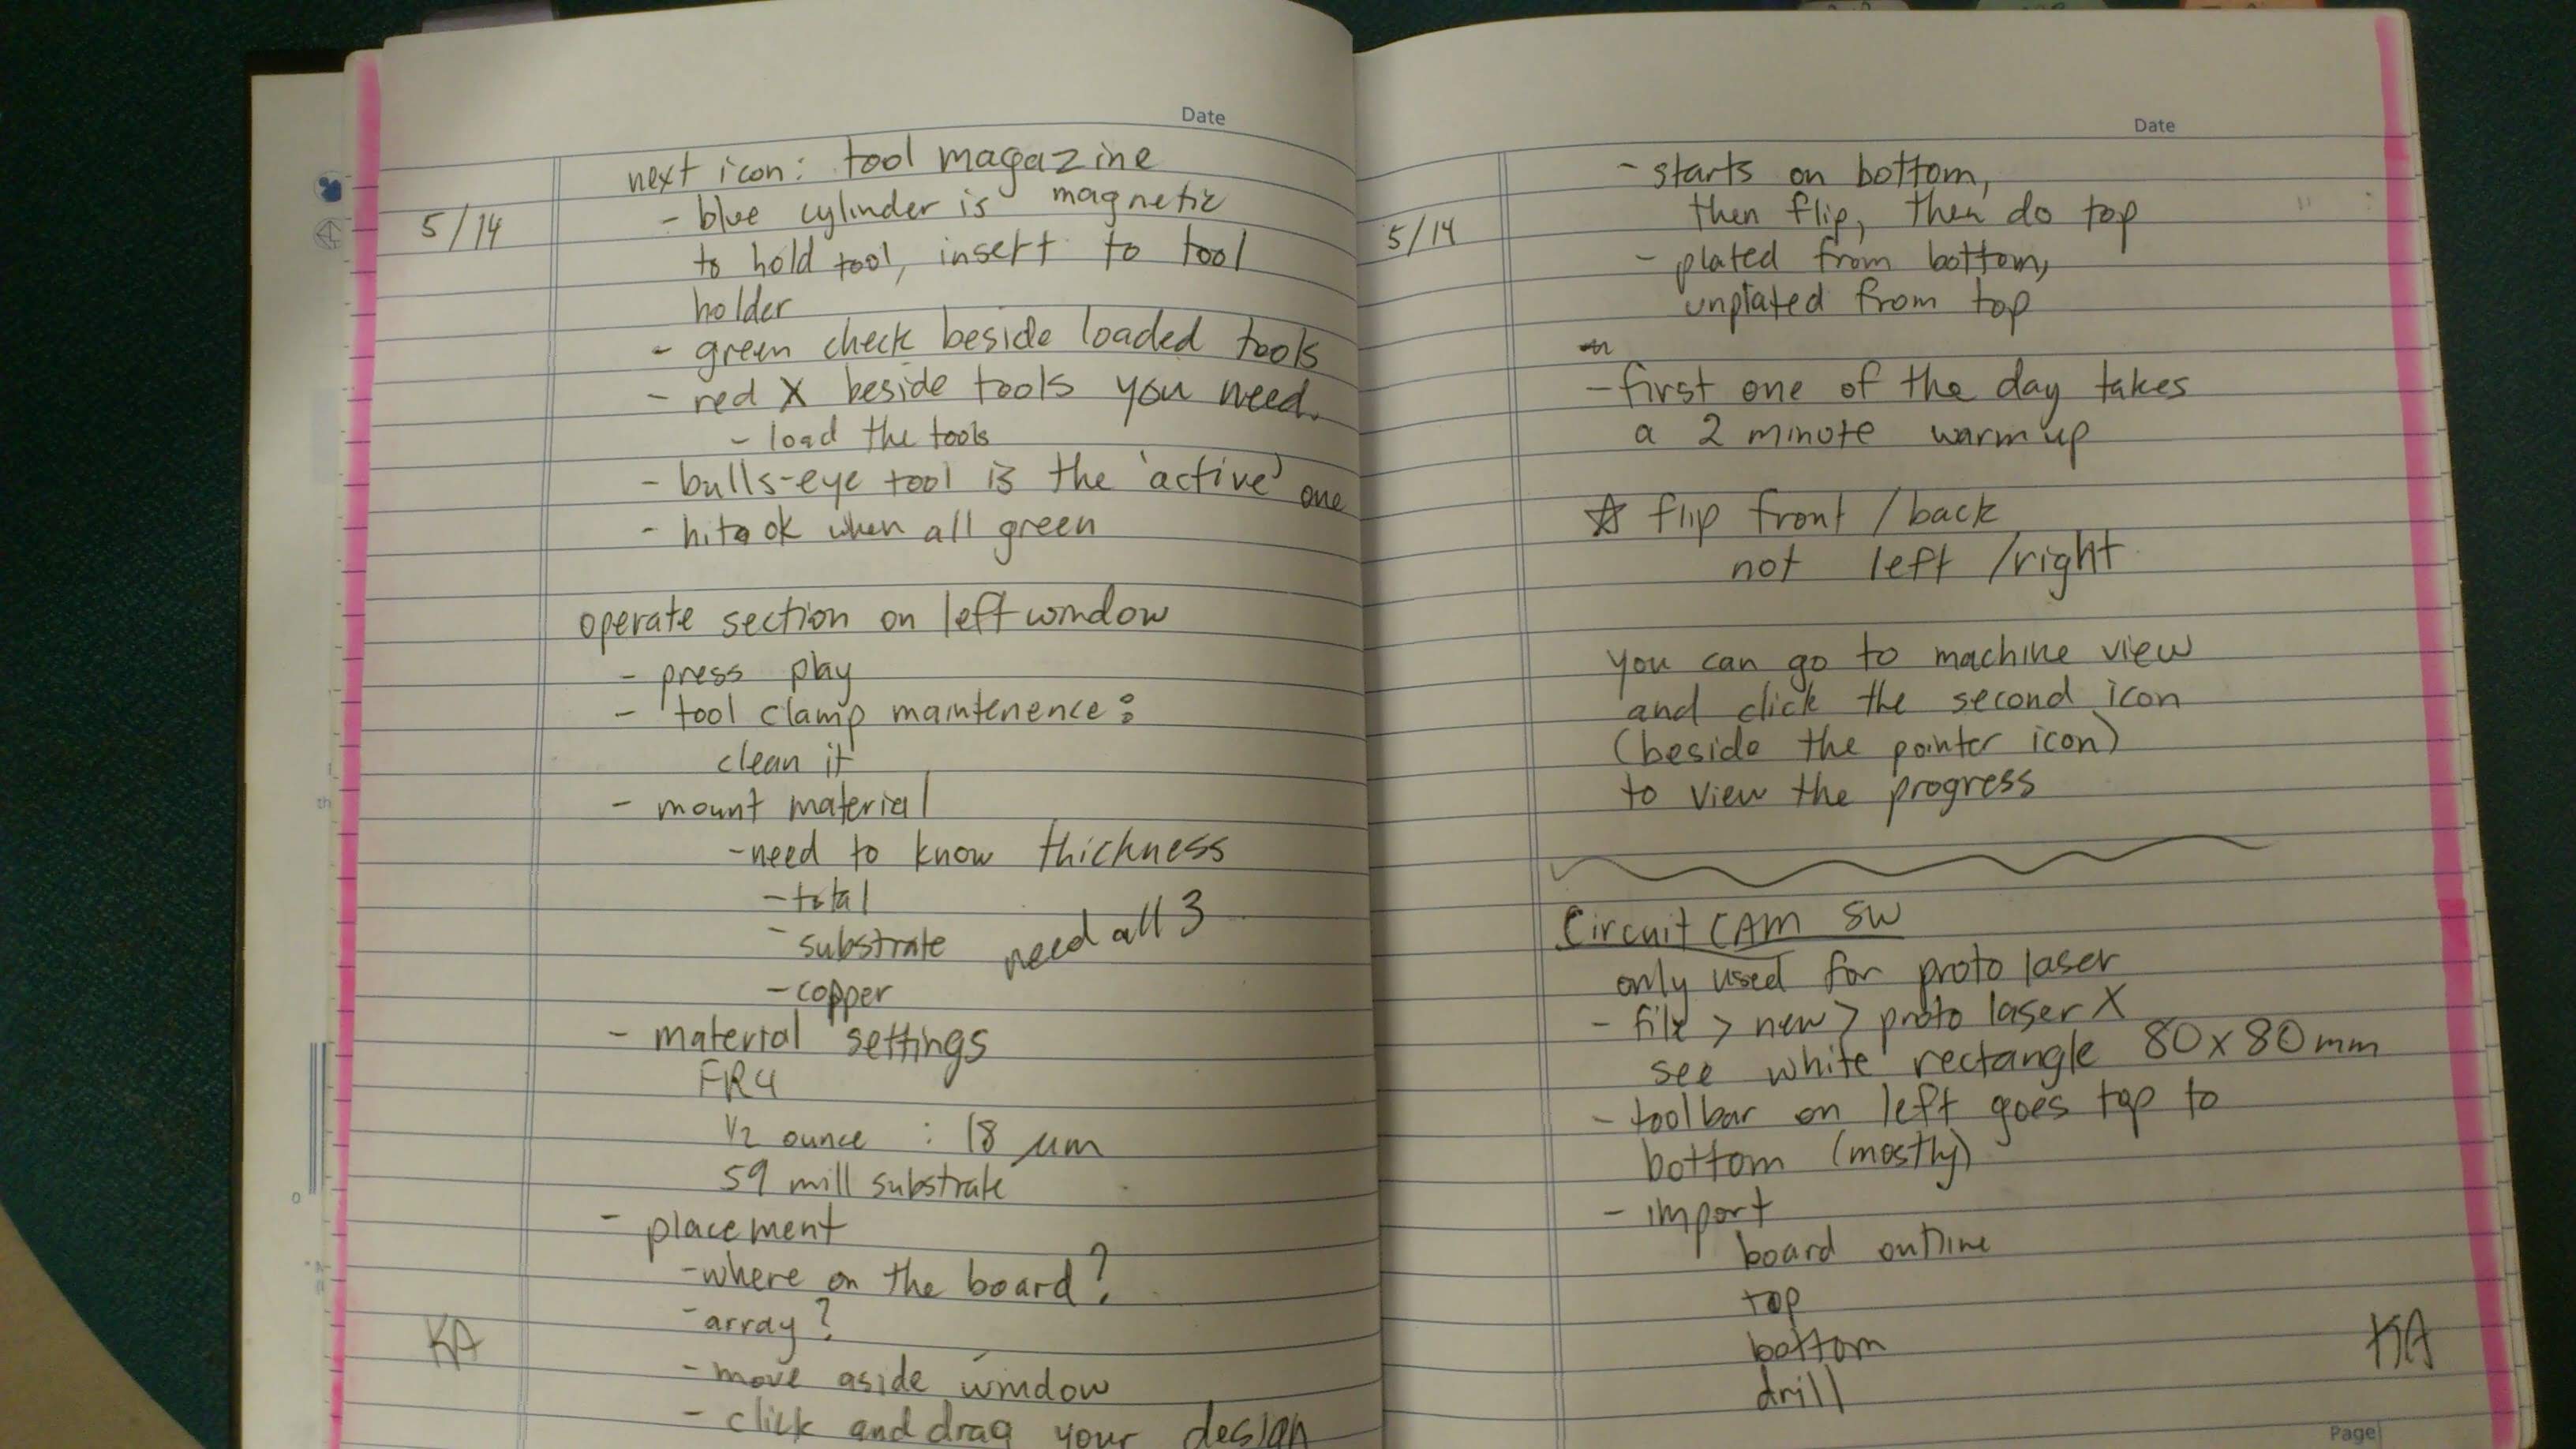 Date
next icon: tool magazine
5/14
- blue cylinder is magnetic
to hold tool, insert to tool
holder
- green check beside loaded tools
- red X beside tools you need.
- load the tools
- bulls-eye tool is the 'active' one
- hit ok when all green
operate section on left window
- press play
- tool clamp maintenence:
clean it
- mount material
- need to know thickness
- total
- substrate need all 3
- copper
- material settings
FR4
1/2 ounce : 18 µm
59 mill substrate
- placement
- where on the board?
- array?
KA
- move aside window
- click and drag your design
Date
- starts on bottom,
then flip, then do top
5/14
- plated from bottom,
unplated from top
- first one of the day takes
a 2 minute warm up
☆ flip front / back
not left / right
you can go to machine view
and click the second icon
(beside the pointer icon)
to view the progress
Circuit CAM SW
only used for proto laser
- file > new > proto laser X
see white rectangle 80 x 80 mm
- toolbar on left goes top to
bottom (mostly)
- import
board outline
top
bottom
drill
KA
Page